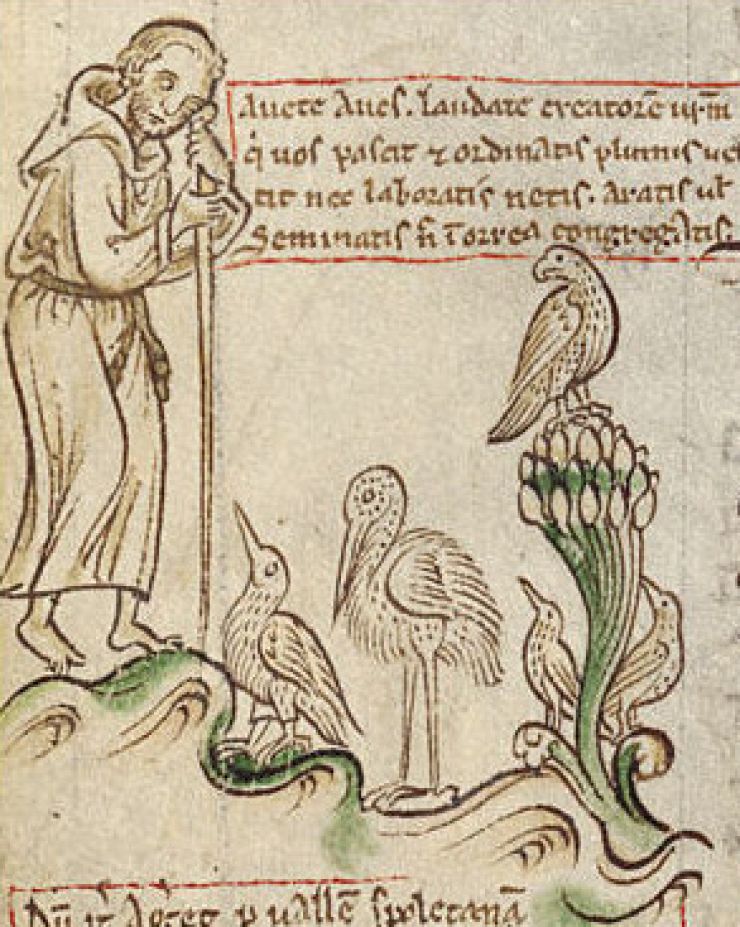 Auete Aues. laudate creatorē urm̄
qͥ uos pascit ⁊ ordinatis plumis ues
tit nec laboratis netis. Aratis ul̄
Seminatis n̄ ī orrea congregatis.
Dū it̄ Ag̃et p uallē spoletanā